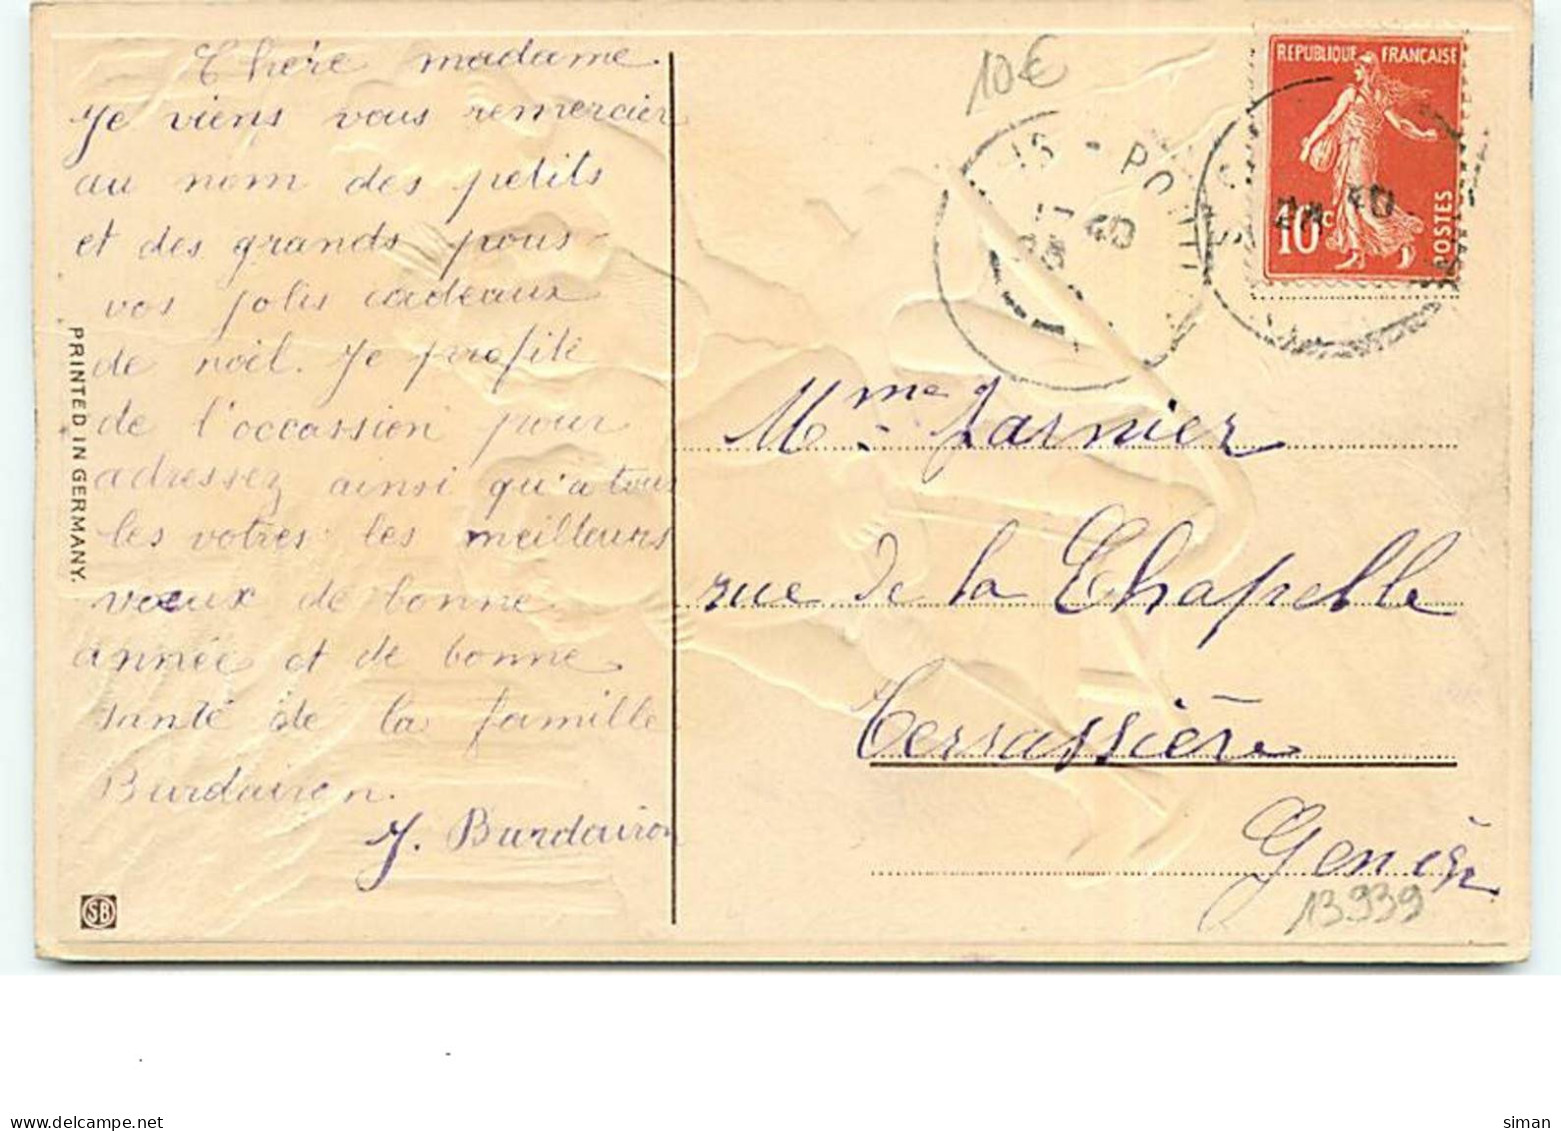 Chère madame
Je viens vous remercier
au nom des petits
et des grands pour
vos jolis cadeaux
de noël. Je profite
de l'occassion pour
adressez ainsi qu'a tous
les votres les meilleurs
vœux de bonne
année et de bonne
santé de la famille
Burdairon.
J. Burdairon
PRINTED IN GERMANY.
SB
10€
REPUBLIQUE FRANÇAISE
10c
POSTES
17 40
Mme Jarnier
rue de la Chapelle
Terrassière
Genève
13939
delcampe.net
siman